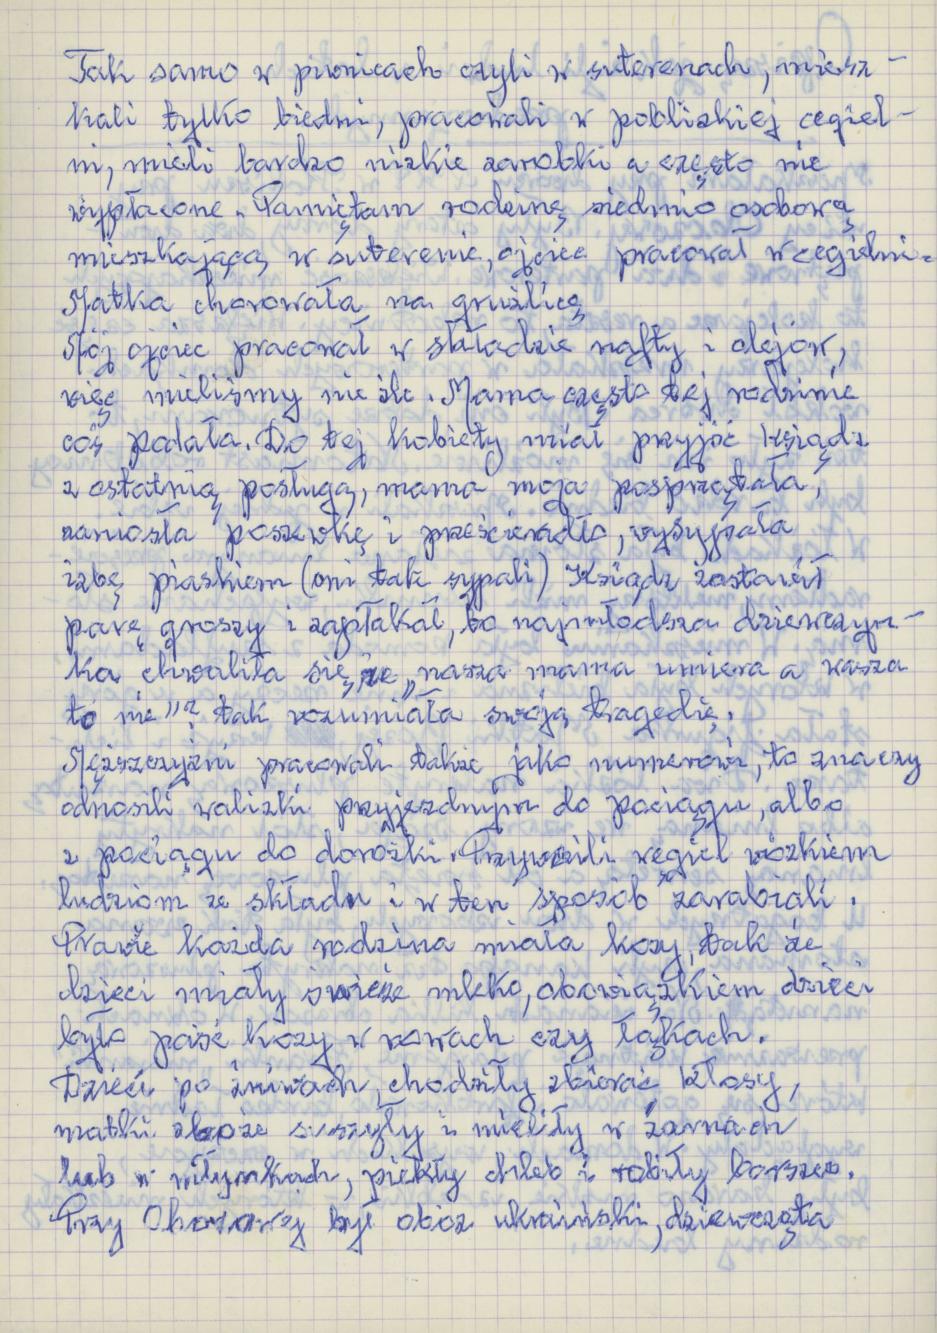 Tak samo w piwnicach czyli w suterenach, miesz-
kali tylko biedni, pracowali w pobliskiej cegiel-
ni, mieli bardzo nizkie zarobki a często nie
wypłacone. Pamiętam rodzinę siedmio osobową
mieszkającą w suterenie, ojciec pracował w cegielni.
Matka chorowała na gruźlicę
Mój ojciec pracował w składzie nafty i olejów,
więc mieliśmy nie źle. Mama często tej rodzinie
coś podała. Do tej kobiety miał przyjść ksiądz
z ostatnią posługą, mama moja posprzątała,
zaniosła poszewkę i prześcieradło, wysypała
izbę piaskiem (oni tak sypali) Ksiądz zostawił
parę groszy i zapłakał, bo najmłodsza dziewczyn-
ka chwaliła się, że „nasza mama umiera a wasza
to nie" tak rozumiała swoją tragedię.
Męższczyźni pracowali także jako numerowi, to znaczy
odnosili walizki przyjezdnym do pociągu, albo
z pociągu do dorożki. Przywozili węgiel wózkiem
ludziom ze składu i w ten sposób zarabiali.
Prawie każda rodzina miała kozy, tak że
dzieci miały świeże mleko, obowiązkiem dzieci
było paść kozy w rowach czy łąkach.
Dzieci po żniwach chodziły zbierać kłosy,
matki zboże suszyły i mieliły w żarnach
lub w młynkach, piekły chleb i robiły barszcz.
Przy był obóz ukraiński, dziewczęta